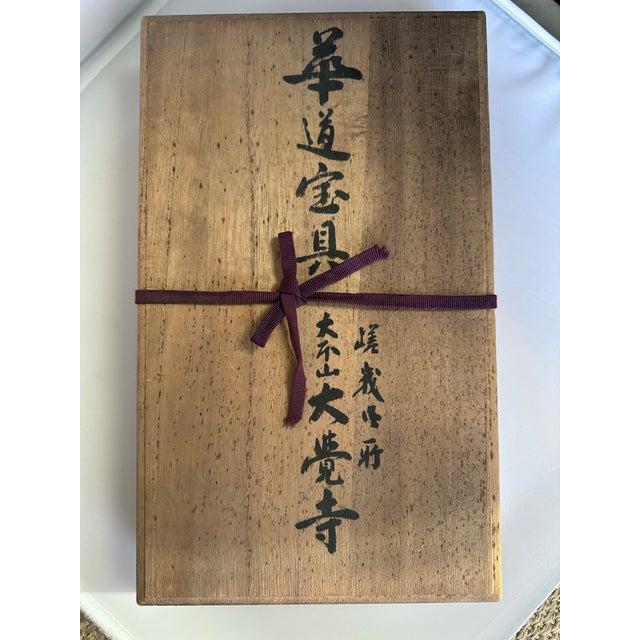 華道宝具
嵯峨御所
大本山大覺寺